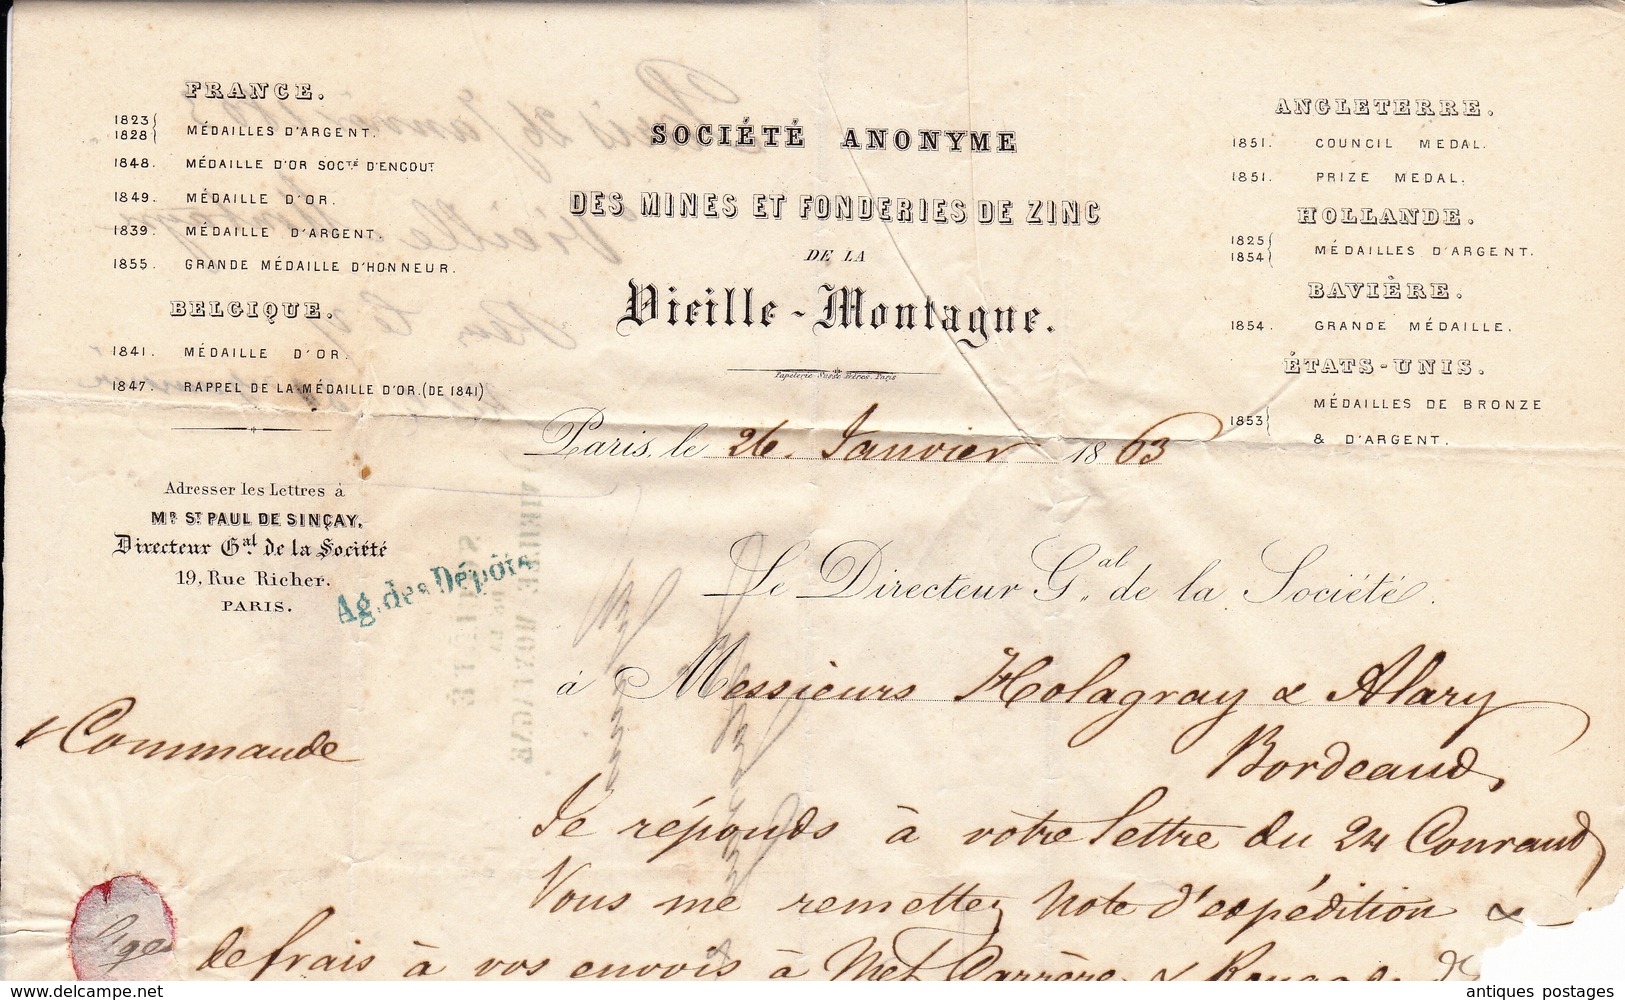 FRANCE.
1823
1828 MÉDAILLES D'ARGENT.
1848. MÉDAILLE D'OR SOCTÉ D'ENCOUT
1849. MÉDAILLE D'OR.
1839. MÉDAILLE D'ARGENT.
1855. GRANDE MÉDAILLE D'HONNEUR.
BELGIQUE.
1841. MÉDAILLE D'OR.
1847. RAPPEL DE LA MÉDAILLE D'OR. (DE 1841)
SOCIÉTÉ ANONYME
DES MINES ET FONDERIES DE ZINC
DE LA
Vieille-Montagne.
ANGLETERRE.
1851. COUNCIL MEDAL.
1851. PRIZE MEDAL.
HOLLANDE.
1825
1854 MÉDAILLES D'ARGENT.
BAVIÈRE.
1854. GRANDE MÉDAILLE.
ÉTATS-UNIS.
1853 MÉDAILLES DE BRONZE
& D'ARGENT.
Paris, le 26 Janvier 1863
Adresser les Lettres à
MR ST PAUL DE SINÇAY,
Directeur Gal. de la Société
19, Rue Richer.
PARIS.
Ag. des Dépôts
Le Directeur Gal. de la Société
à Messieurs Holagray & Alary
Bordeaux,
Commande
Je réponds à votre lettre du 24 Courant,
Vous me remettez note d'expédition &
de frais à vos envois à
antiques postages
delcampe.net